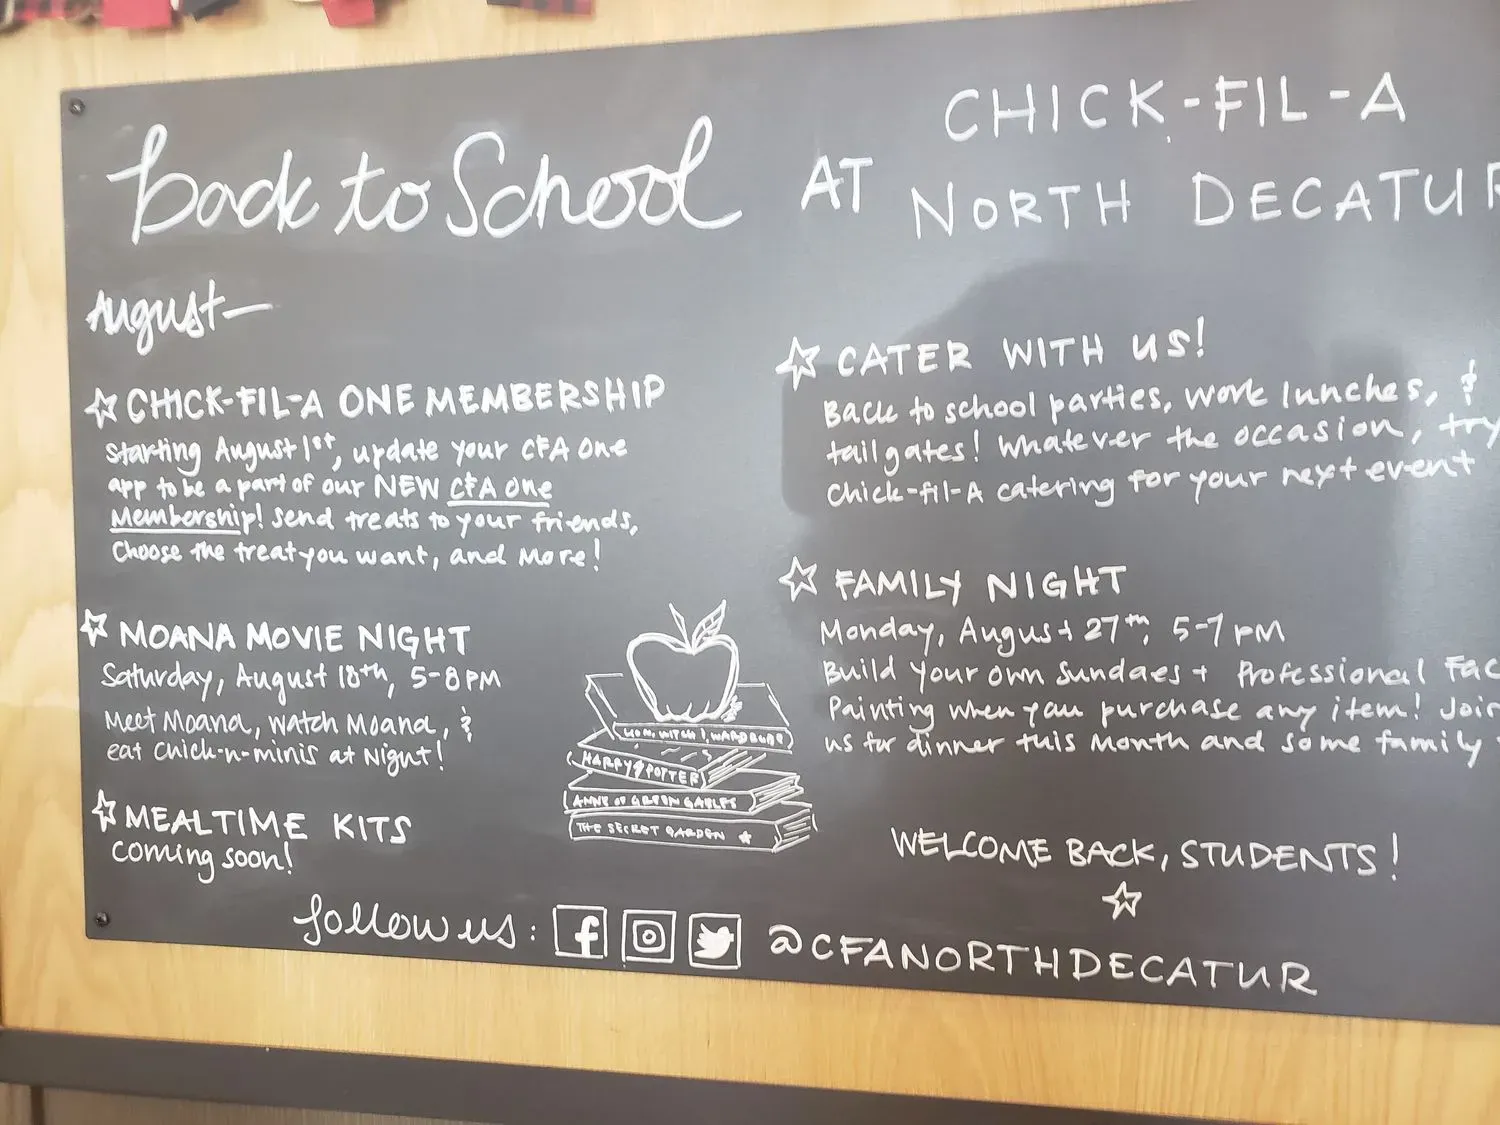 back to School
AT
CHICK-FIL-A
NORTH DECATUR
August—
CHICK-FIL-A ONE MEMBERSHIP
Starting August 1st, update your CFA One
app to be a part of our NEW CFA One
Membership! Send treats to your friends,
Choose the treat you want, and more!
MOANA MOVIE NIGHT
Saturday, August 18th, 5-8PM
Meet Moana, watch Moana, &
eat Chick-n-minis at Night!
MEALTIME KITS
coming soon!
LION, WITCH, WARDROBE
HARRY POTTER
ANNE OF GREEN GABLES
THE SECRET GARDEN
CATER WITH US!
Back to school parties, work lunches, &
tailgates! Whatever the occasion, try
Chick-fil-A catering for your next event
FAMILY NIGHT
Monday, August 27th, 5-7PM
Build your own Sundaes + Professional Fac
Painting when you purchase any item! Join
us for dinner this month and some family
WELCOME BACK, STUDENTS!
follow us:
@CFANORTHDECATUR